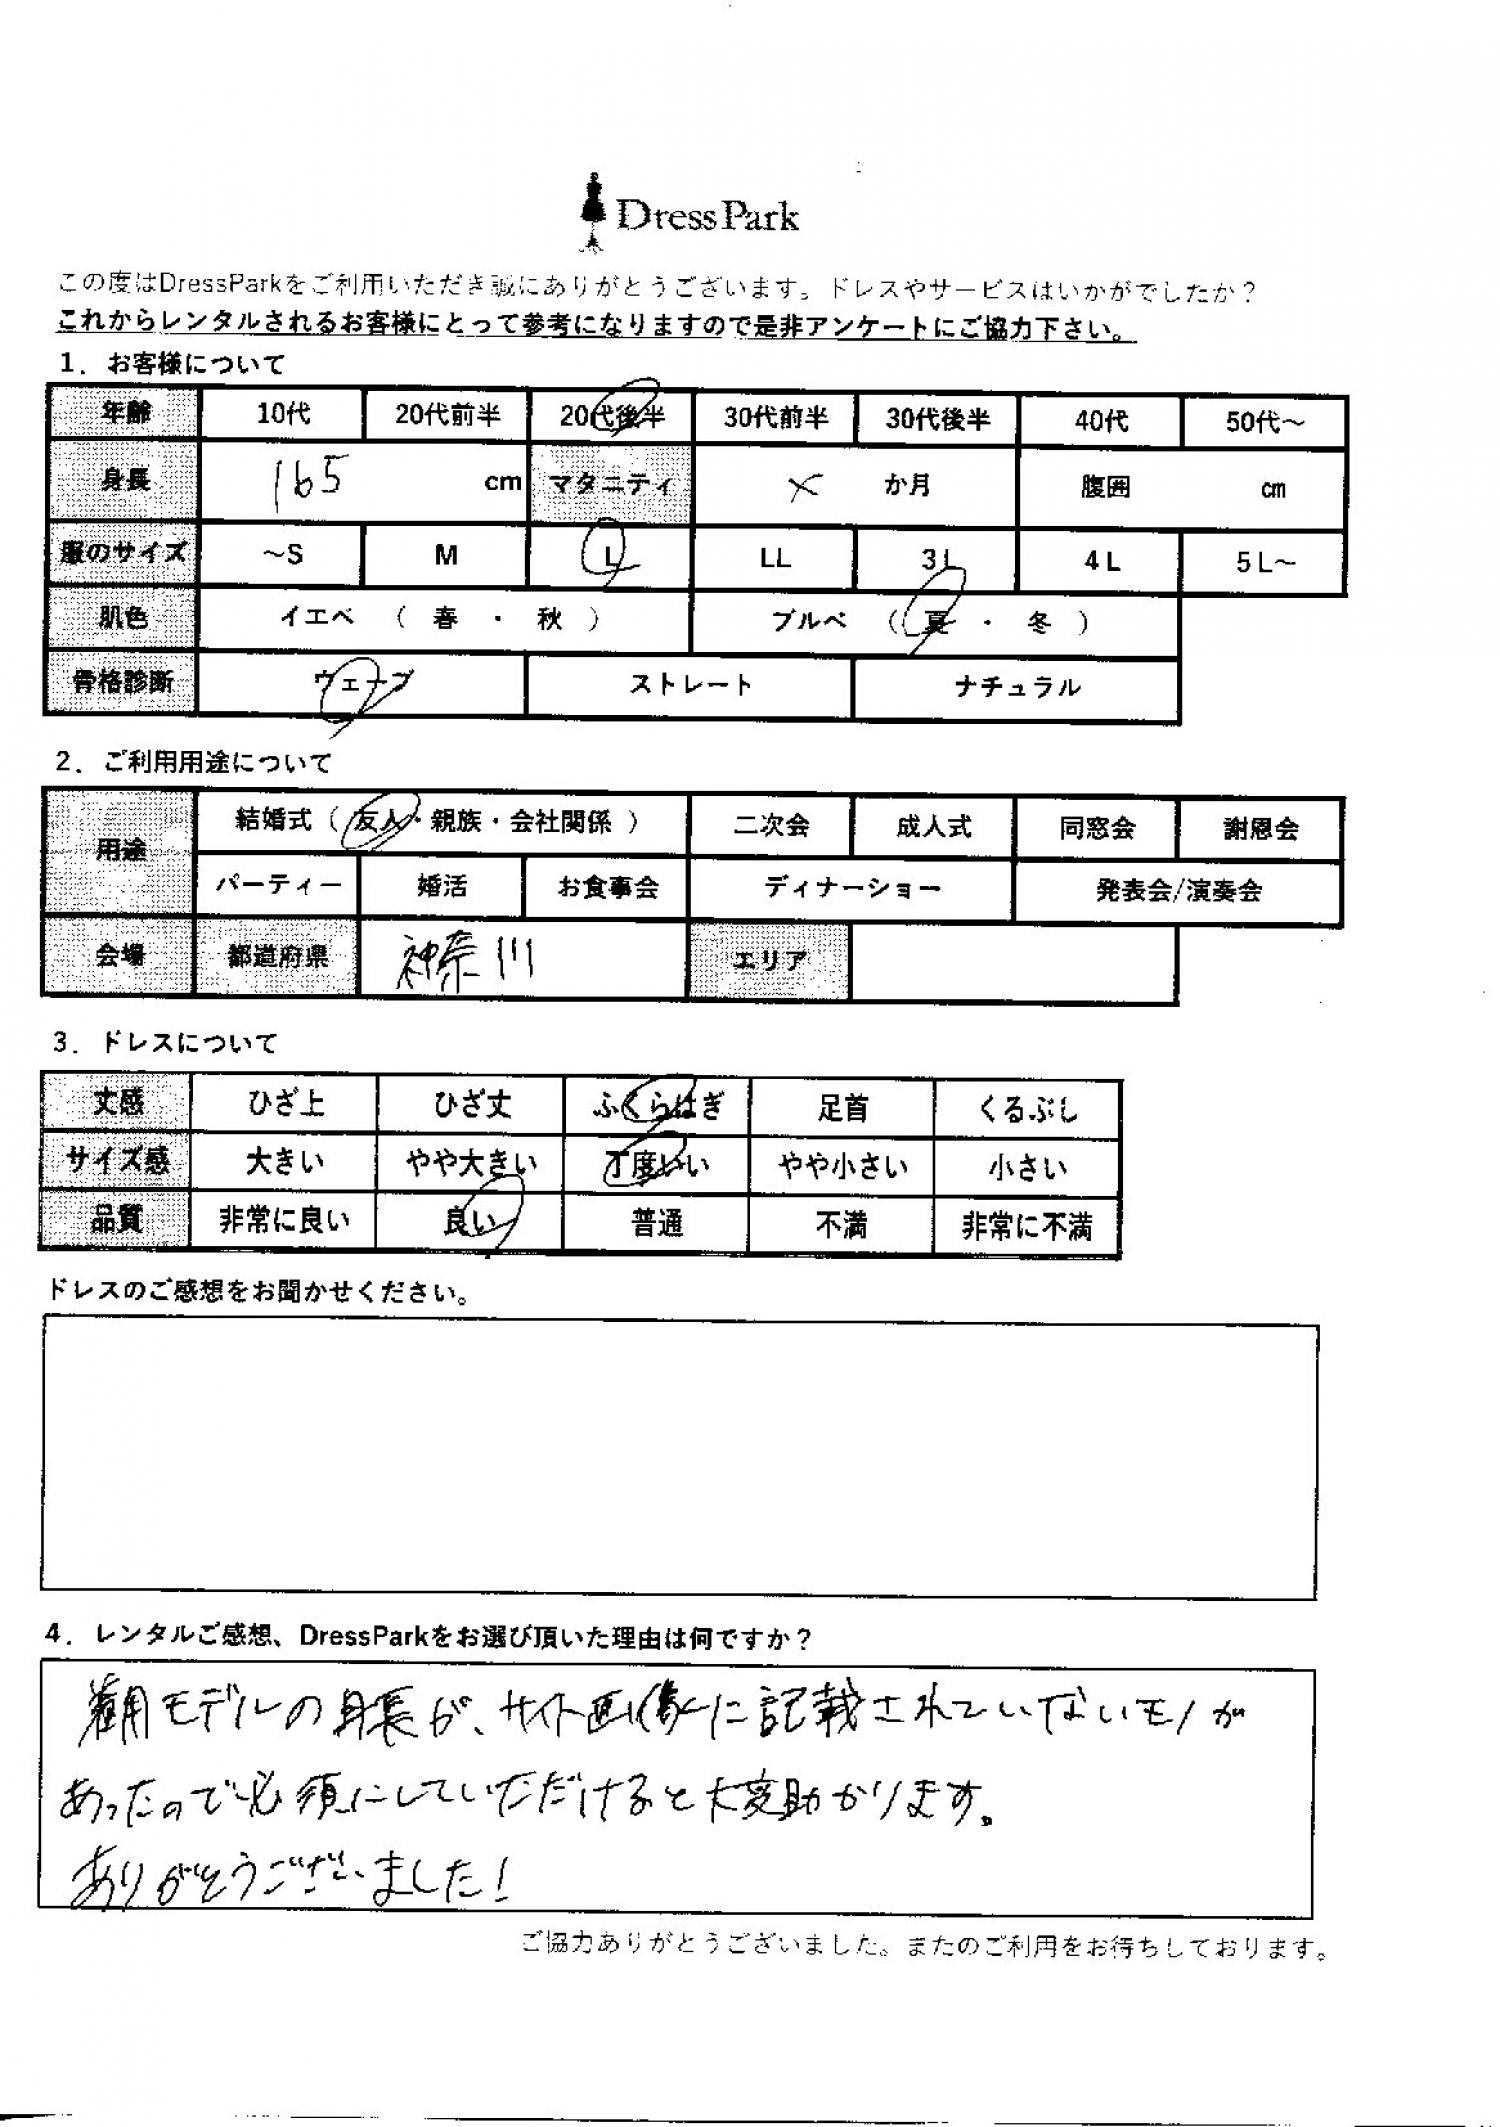 DressPark
この度はDressParkをご利用いただき誠にありがとうございます。ドレスやサービスはいかがでしたか？
これからレンタルされるお客様にとって参考になりますので是非アンケートにご協力下さい。
1．お客様について
年齢 10代 20代前半 20代後半 30代前半 30代後半 40代 50代～
身長 165 cm マタニティ × か月 腹囲 cm
服のサイズ ～S M L LL 3L 4L 5L～
肌色 イエベ （ 春 ・ 秋 ） ブルベ （ 夏 ・ 冬 ）
骨格診断 ウェーブ ストレート ナチュラル
2．ご利用用途について
用途 結婚式（ 友人・親族・会社関係 ） 二次会 成人式 同窓会 謝恩会
パーティー 婚活 お食事会 ディナーショー 発表会/演奏会
会場 都道府県 神奈川 エリア
3．ドレスについて
丈感 ひざ上 ひざ丈 ふくらはぎ 足首 くるぶし
サイズ感 大きい やや大きい 丁度いい やや小さい 小さい
品質 非常に良い 良い 普通 不満 非常に不満
ドレスのご感想をお聞かせください。
4．レンタルご感想、DressParkをお選び頂いた理由は何ですか？
着用モデルの身長が、サイト画像に記載されていないモノが
あったので必須にしていただけると大変助かります。
ありがとうございました！
ご協力ありがとうございました。またのご利用をお待ちしております。